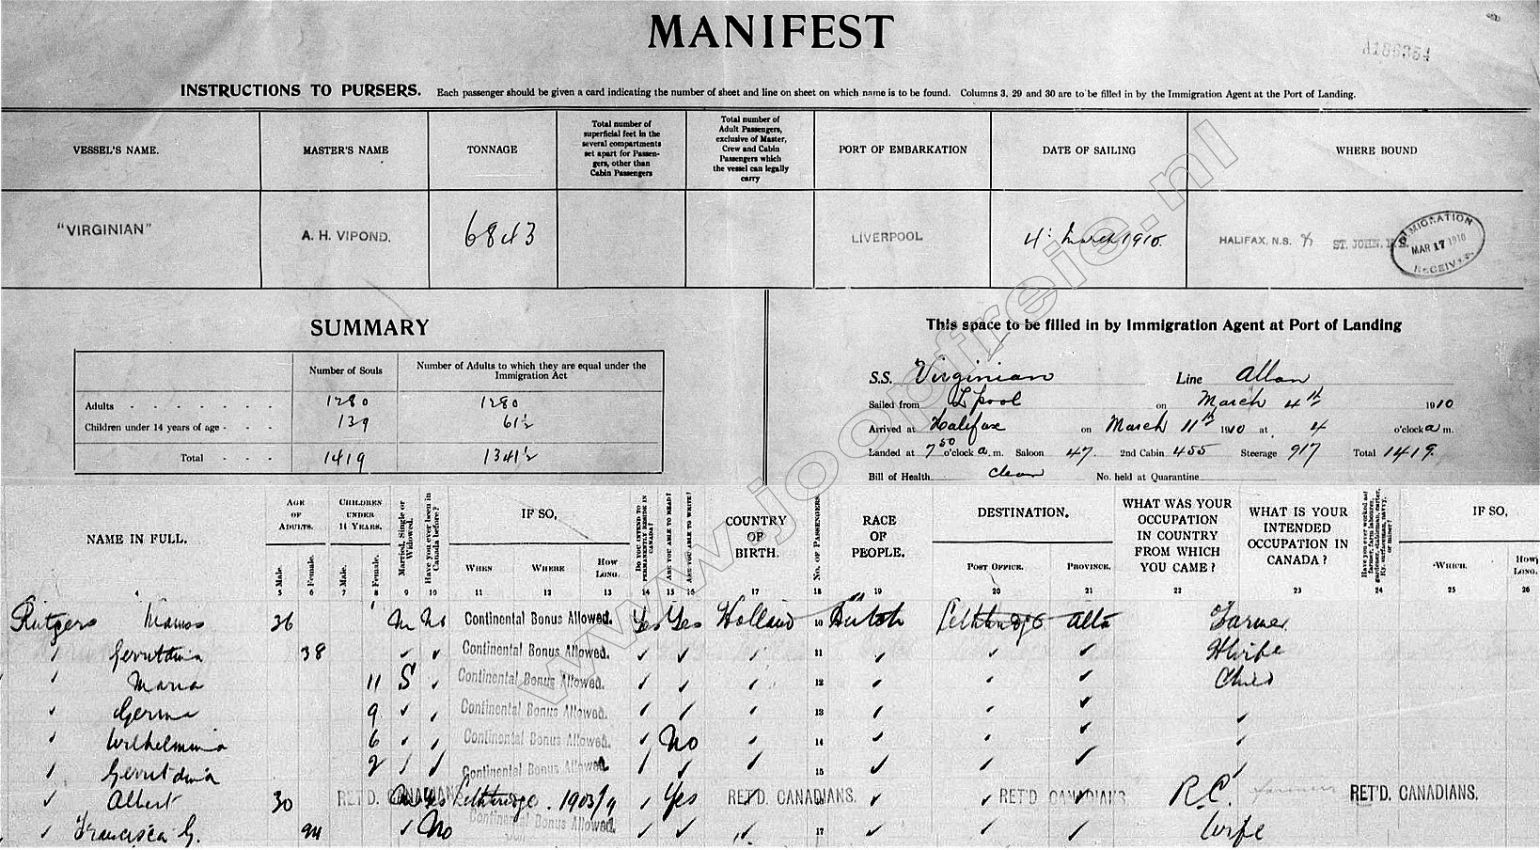 MANIFEST
A186354
INSTRUCTIONS TO PURSERS. Each passenger should be given a card indicating the number of sheet and line on sheet on which name is to be found. Columns 3, 29 and 30 are to be filled in by the Immigration Agent at the Port of Landing.
VESSEL'S NAME. MASTER'S NAME TONNAGE Total number of superficial feet in the several compartments set apart for Passengers, other than Cabin Passengers Total number of Adult Passengers, exclusive of Master, Crew and Cabin Passengers which the vessel can legally carry PORT OF EMBARKATION DATE OF SAILING WHERE BOUND
"VIRGINIAN" A. H. VIPOND. 6843 LIVERPOOL 4th March 1910 HALIFAX, N.S. & ST. JOHN, N.B.
IMMIGRATION
MAR 17 1910
RECEIVED
SUMMARY
Number of Souls Number of Adults to which they are equal under the Immigration Act
Adults 1280 1280
Children under 14 years of age 139 61½
Total 1419 1341½
This space to be filled in by Immigration Agent at Port of Landing
S.S. Virginian Line Allan
Sailed from L'pool on March 4th 1910
Arrived at Halifax on March 11th 1910 at 4 o'clock a m.
Landed at 7 50 o'clock a. m. Saloon 47. 2nd Cabin 455 Steerage 917 Total 1419.
Bill of Health clean No. held at Quarantine
NAME IN FULL. AGE OF ADULTS. CHILDREN UNDER 14 YEARS. Married, Single or Widowed. Have you ever been in Canada before? IF SO, DO YOU INTEND TO PERMANENTLY RESIDE IN CANADA? ARE YOU ABLE TO READ? ARE YOU ABLE TO WRITE? COUNTRY OF BIRTH. No. of Passengers RACE OF PEOPLE. DESTINATION. WHAT WAS YOUR OCCUPATION IN COUNTRY FROM WHICH YOU CAME? WHAT IS YOUR INTENDED OCCUPATION IN CANADA? IF SO,
Male. Female. Male. Female. WHEN WHERE HOW LONG. POST OFFICE. PROVINCE. WHICH. HOW LONG.
5 6 7 8 9 10 11 12 13 14 15 16 17 18 19 20 21 22 23 24 25 26
Rutgers Manus 36 M No Continental Bonus Allowed. Yes Yes Holland 10 Dutch Lethbridge Alta Farmer
Gerritdina 38 Continental Bonus Allowed. 11 H wife
Maria 11 S Continental Bonus Allowed. 12 Child
Germa 9 Continental Bonus Allowed. 13
Wilhelmina 6 Continental Bonus Allowed. No 14
Gerritdina 2 Continental Bonus Allowed. 15
Albert 30 RET'D. CANADIANS. M Yes Lethbridge. 1903/9 Yes RET'D. CANADIANS. RET'D CANADIANS. R.C. farmer RET'D. CANADIANS.
Francisca G. 24 No Continental Bonus Allowed. 17 Wife
www.jooptreis.nl